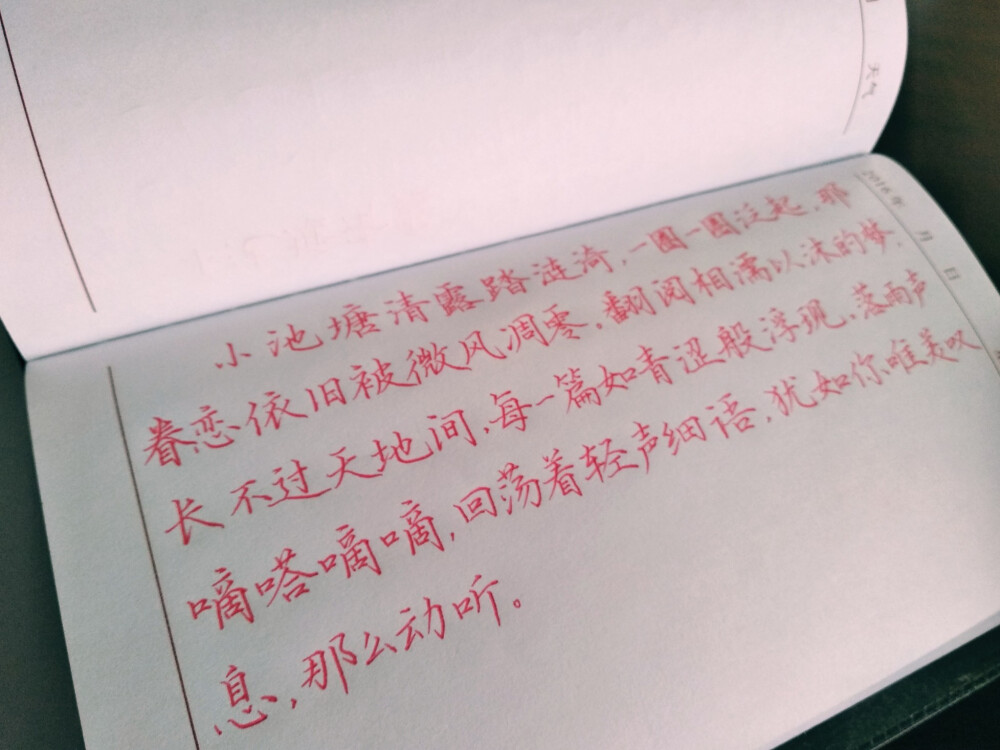 天气
2016年 月 日
小池塘清露踏涟漪，一圈一圈泛起，那
眷恋依旧被微风凋零。翻阅相濡以沫的梦，
长不过天地间，每一篇如青涩般浮现。落雨声
嘀嗒嘀嘀，回荡着轻声细语，犹如你唯美叹
息，那么动听。